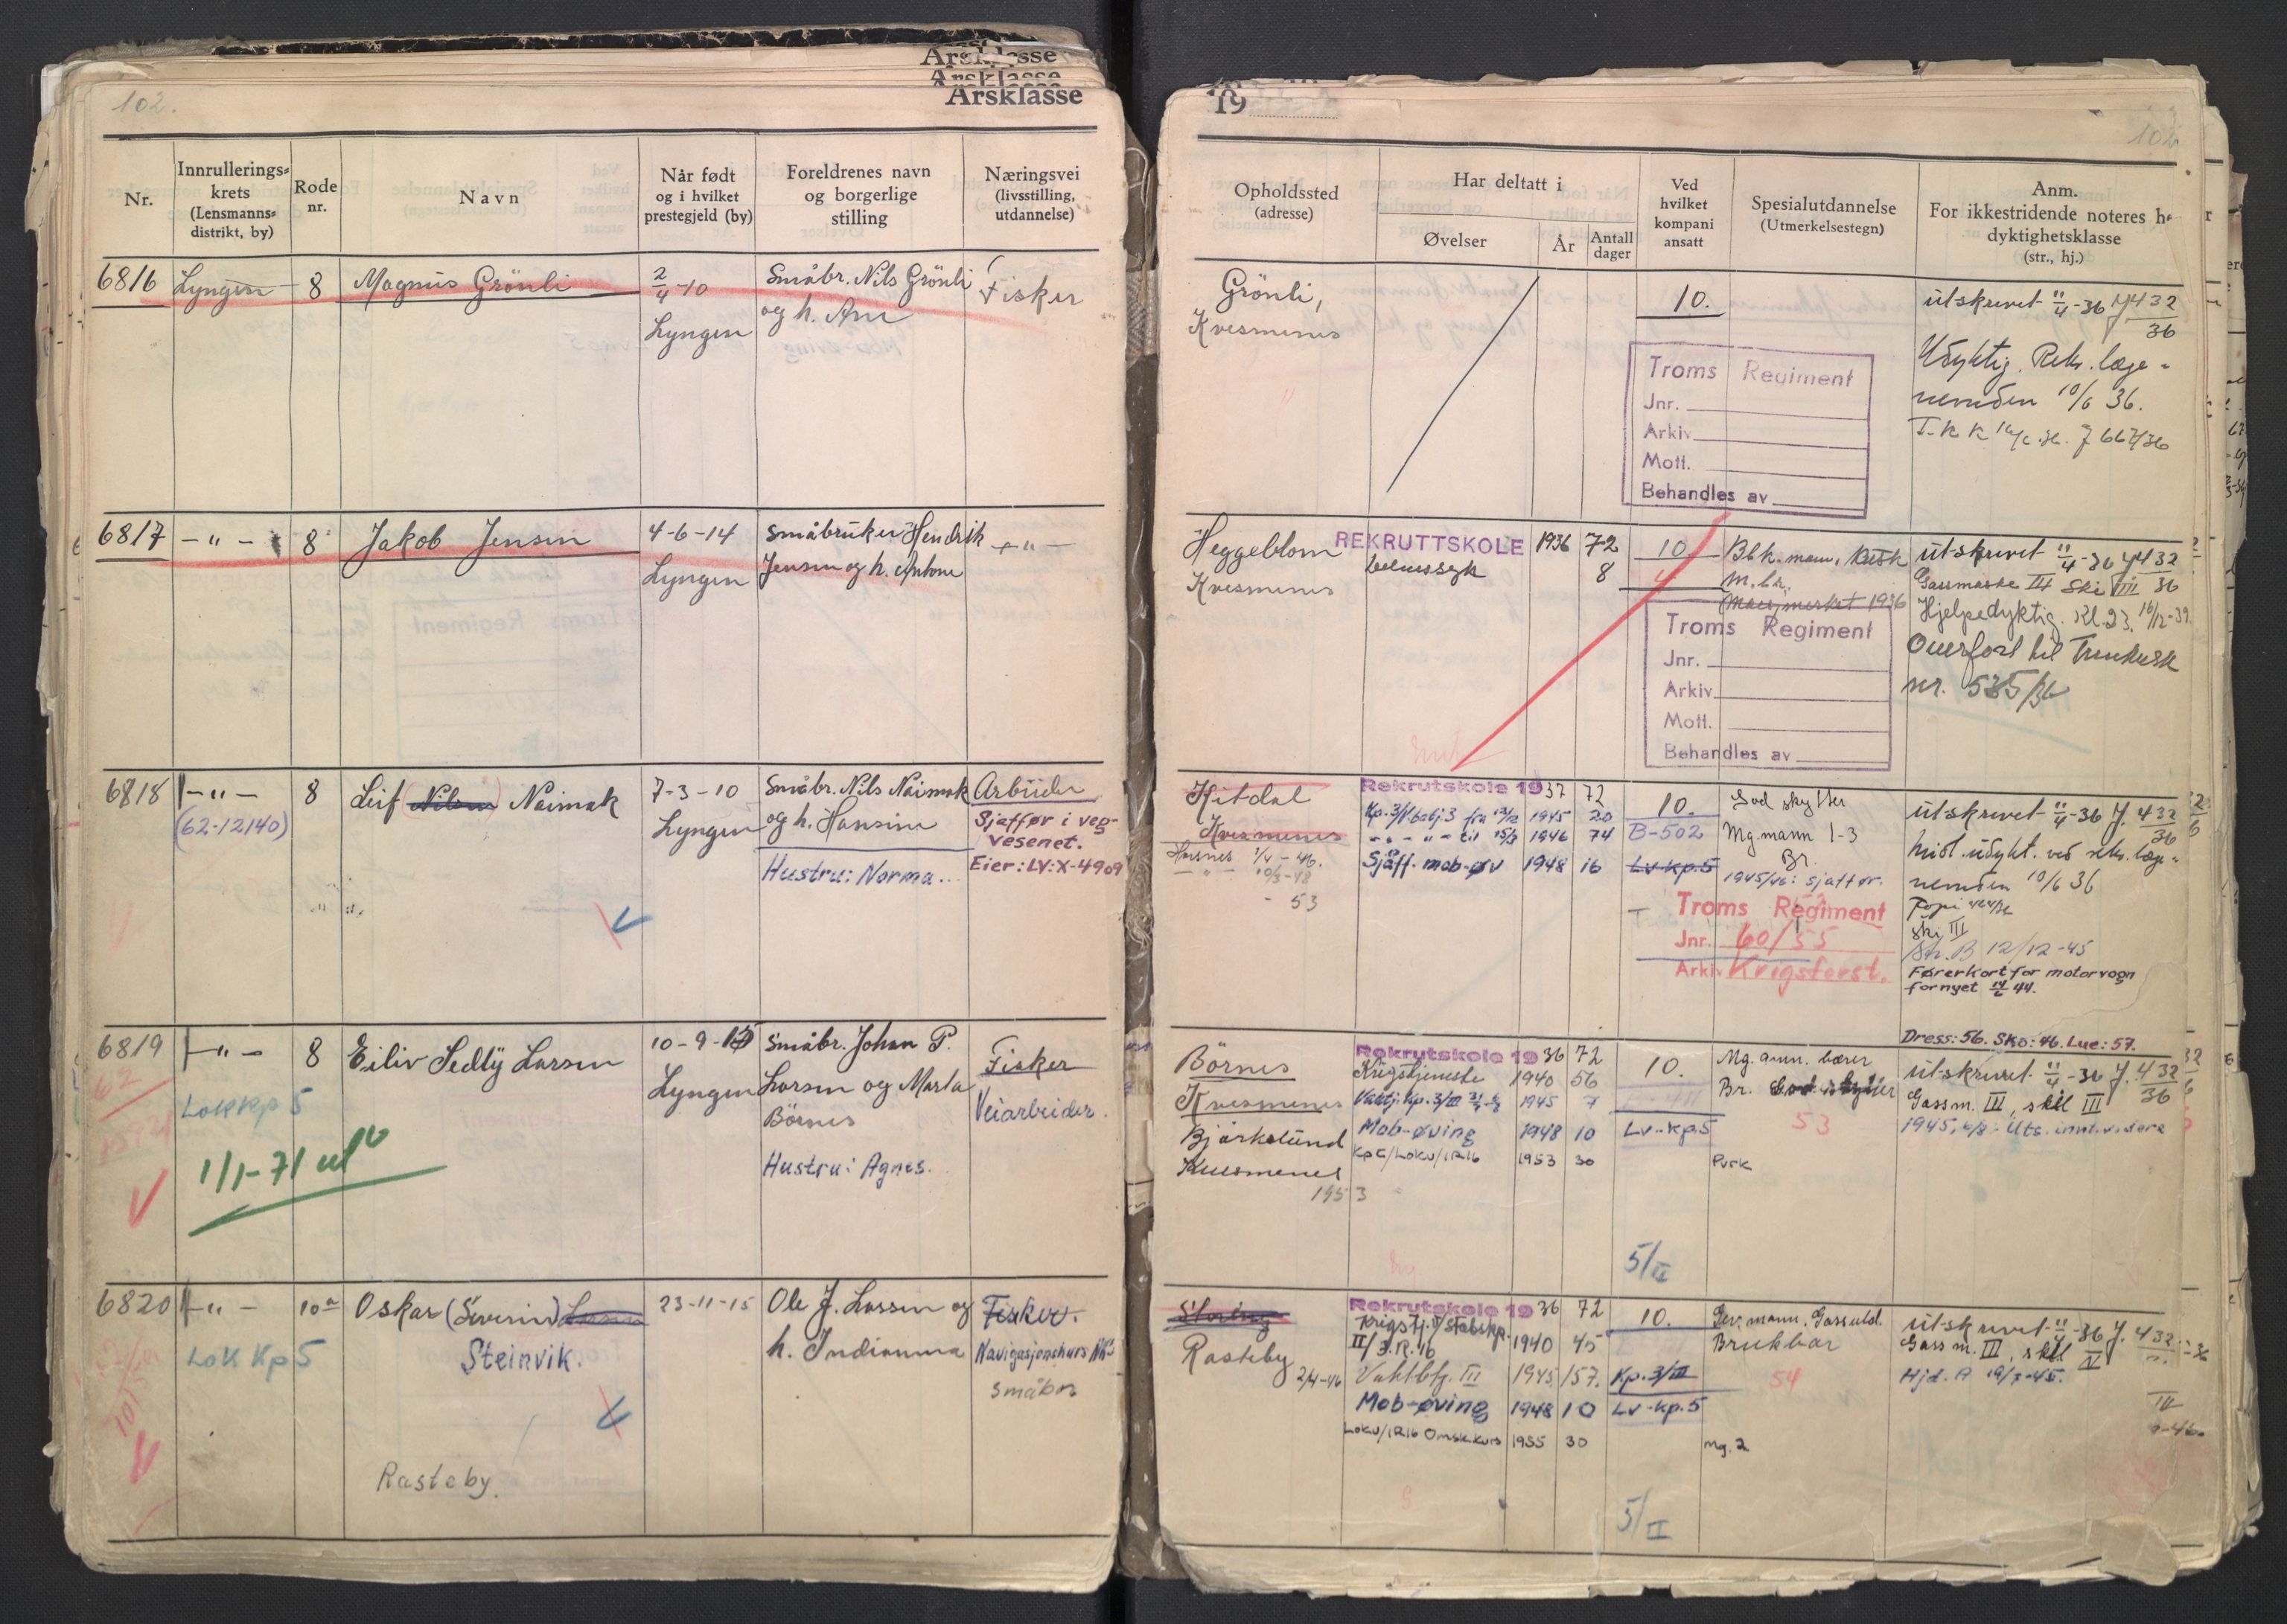 Årsklasse
Årsklasse
102.
Nr.
Innrullerings-
krets
(Lensmanns-
distrikt, by)
Rode
nr.
Navn
Når født
og i hvilket
prestegjeld (by)
Foreldrenes navn
og borgerlige
stilling
Næringsvei
(livsstilling,
utdannelse)
6816 Lyngen 8 Magnus Grönli
2/4-10
Lyngen
Småbr. Nils Grönli
og h. Ane
Fisker
6817 -"- 8 Jakob Jensen
4-6-14
Lyngen
Småbruker Hendrik
Jensen og h. Antone
-"-
6818 -"- 8 Leif Nilsen Naimak
(62-12140)
7-3-10
Lyngen
Småbr. Nils Naimak
og h. Hansine
Hustru: Norma.
Arbeider
Sjåffør i veg-
vesenet.
Eier: LV: X-4909
6819 -"- 8 Eiliv Sedly Larsen
62
Lokkp 5
1/1-71
10-9-15
Lyngen
Småbr. Johan P.
Larsen og Marta
Börnes
Hustru: Agnes.
Fisker
Veiarbeider.
6820 -"- 10a Oskar (Severin) Larsen
Steinvik.
Lok Kp 5
Rasteby.
23-11-15
Ole J. Larsen og
h. Indianna
Fisker.
Navigasjonskurs
småbr
19
102
Opholdssted
(adresse)
Har deltatt i
Øvelser
År
Antall
dager
Ved
hvilket
kompani
ansatt
Spesialutdannelse
(Utmerkelsestegn)
Anm.
For ikkestridende noteres he
dyktighetsklasse
(str., hj.)
Grönli,
Kvesmenes
10.
Troms Regiment
Jnr.
Arkiv
Mott.
Behandles av
utskrevet 11/4-36 J 432/36
Udyktig. Rekr. læge-
nemden 10/6 36.
Heggeblom
Kvesmenes
REKRUTTSKOLE 1936 72
8
10
4
Blk. mann, Kusk
M.br.
Marsjmerket 1936
Troms Regiment
Jnr.
Arkiv
Mott.
Behandles av
utskrevet 11/4-36 J 432/36
Gassmaske III Ski III
Hjelpedyktig. Kl. 23. 16/12-39.
Overført til Trenkusk
nr. 535/36
Kitdal
Kvesmenes
Hasnes 1/4-46.
-"- 10/3-48
- 53
Rekrutskole 1937 72
1945 20
1946 74
Sjåff. mob-øv 1948 16
10.
B-502
Lv-kp.5
God skytter
Mg.mann 1-3
Br.
1945/46: sjåffør.
Troms Regiment
Jnr. 60/55
Arkiv Krigsforst.
utskrevet 11/4-36 J. 432/36
Midl. udykt. ved rekr. læge-
nemden 10/6 36
Ski III
Str. B 12/12-45
Førerkort for motorvogn
fornyet 14/6 44.
Dress: 56. Sko: 46. Lue: 57.
Börnes
Kvesmenes
Bjørkelund
Kvesmenes
1953
Rekrutskole 1936 72
Krigstjeneste 1940 56
1945 7
Mob-øving 1948 10
Kp 5/Lokv/IR16 1953 30
10.
Lv-kp5
5/II
Mg. amm. bærer
Br. God skytter
53
Pvrk
utskrevet 11/4-36 J. 432/36
Gassm. III, skll III
Rasteby
2/4-46
Rekrutskole 1936 72
Krigstj. Stabskp.
II/I.R. 16 1940 45
Vaktbtj. III 1945 157.
Mob-øving 1948 10
Lokv/IR16 Omsk.kurs 1955 30
10.
Kp. 3/III
Lv-kp.5
5/II
Gev. mann. Gassutd.
Brukbar
54
Mg. 2
utskrevet 11/4-36 J. 432
Gassm. III, skll IV
Hjd. A 19/7-45.